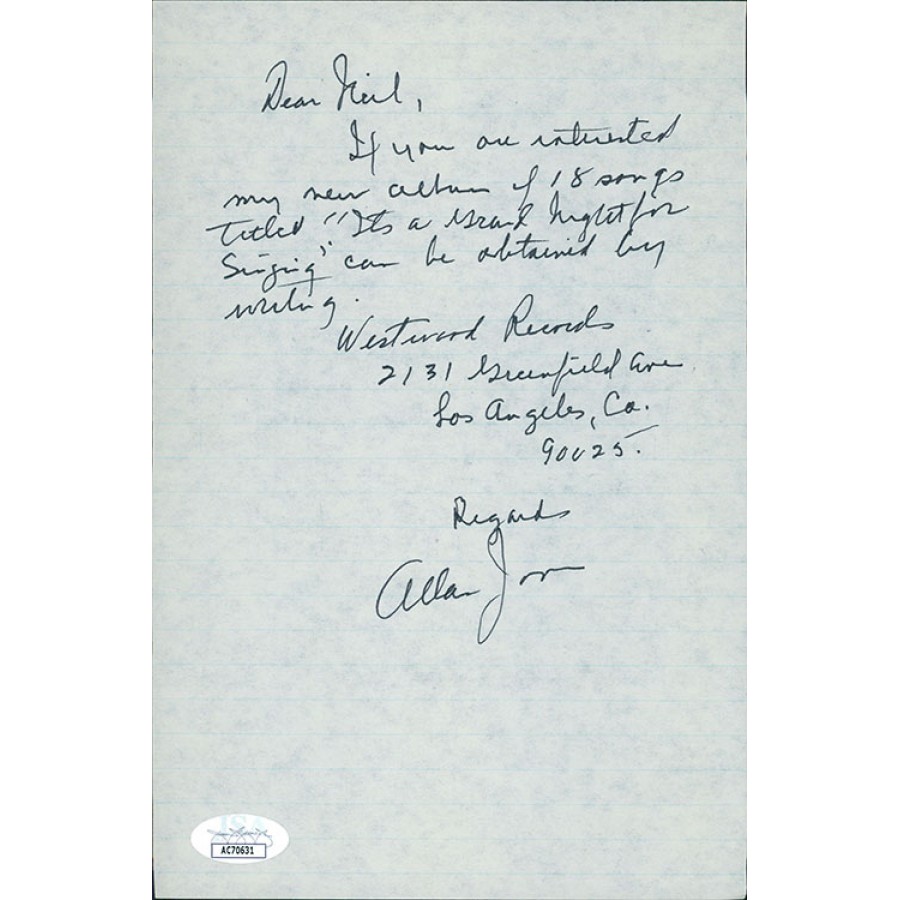 Dear Neil,
If you are interested
my new album of 18 songs
titled "Its a Grand Night for
Singing" can be obtained by
writing.
Westwood Records
2131 Greenfield Ave
Los Angeles, Ca.
90025.
Regards
Allan Jones
JSA
AC70631